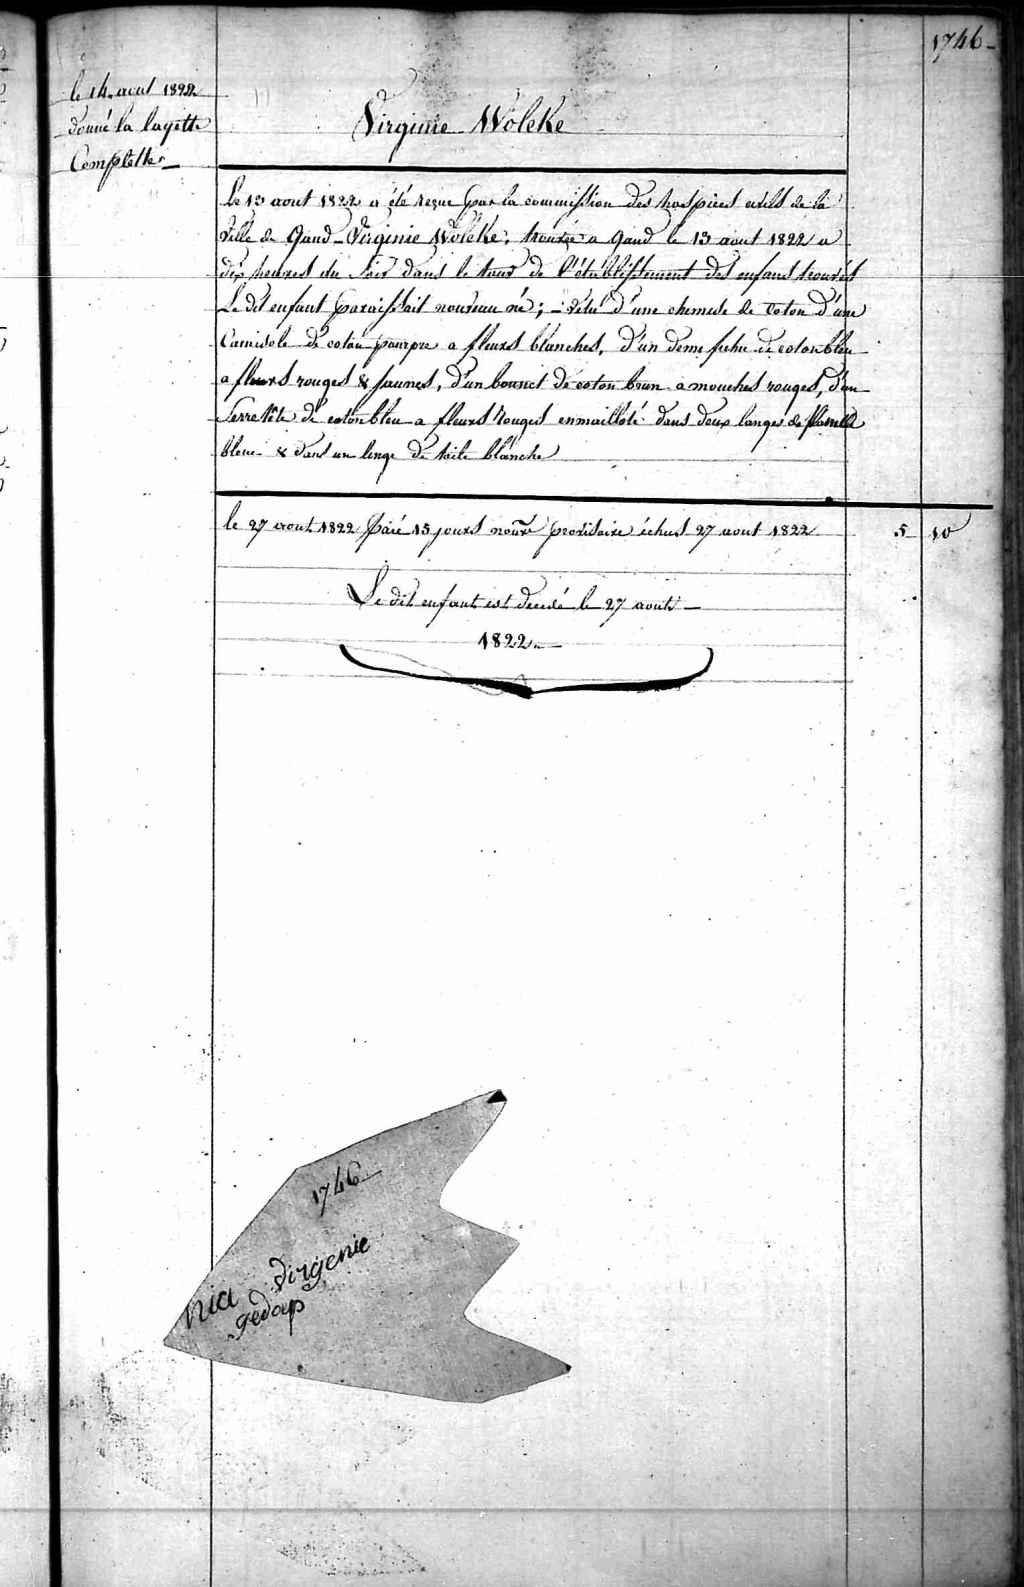 1746-
le 14. aout 1822
donné la layette
Complette
Virginie Woleke
Le 13 aout 1822 a été reçue par la commission des hospices civils de la
ville de Gand Virginie Woleke, trouvée a Gand le 13 aout 1822 a
dix heures du soir dans le tour de l'établissement des enfans trouvés
Le dit enfant paraissait nouveau né; - vetu d'une chemise de coton d'une
Camisole de coton pourpre a fleurs blanches, d'un demi fichu de coton bleu
a fleurs rouges & jaunes, d'un bonnet de coton brun a mouches rouges, d'un
Serre tête de coton bleu a fleurs rouges enmailloté dans deux langes de flanelle
bleue & dans un linge de toile blanche
le 27 aout 1822 païé 15 jours nourre provisoire échus 27 aout 1822 5 10
Le dit enfant est decedé le 27 aout
1822
1746
nia Virgenie
gedoop